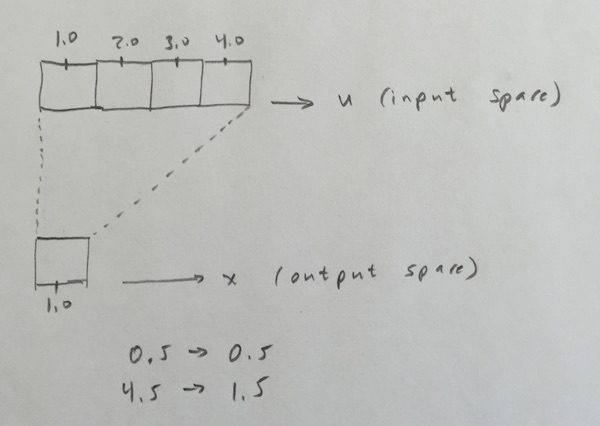 1.0 2.0 3.0 4.0
→ u (input space)
→ x (output space)
1.0
0.5 → 0.5
4.5 → 1.5